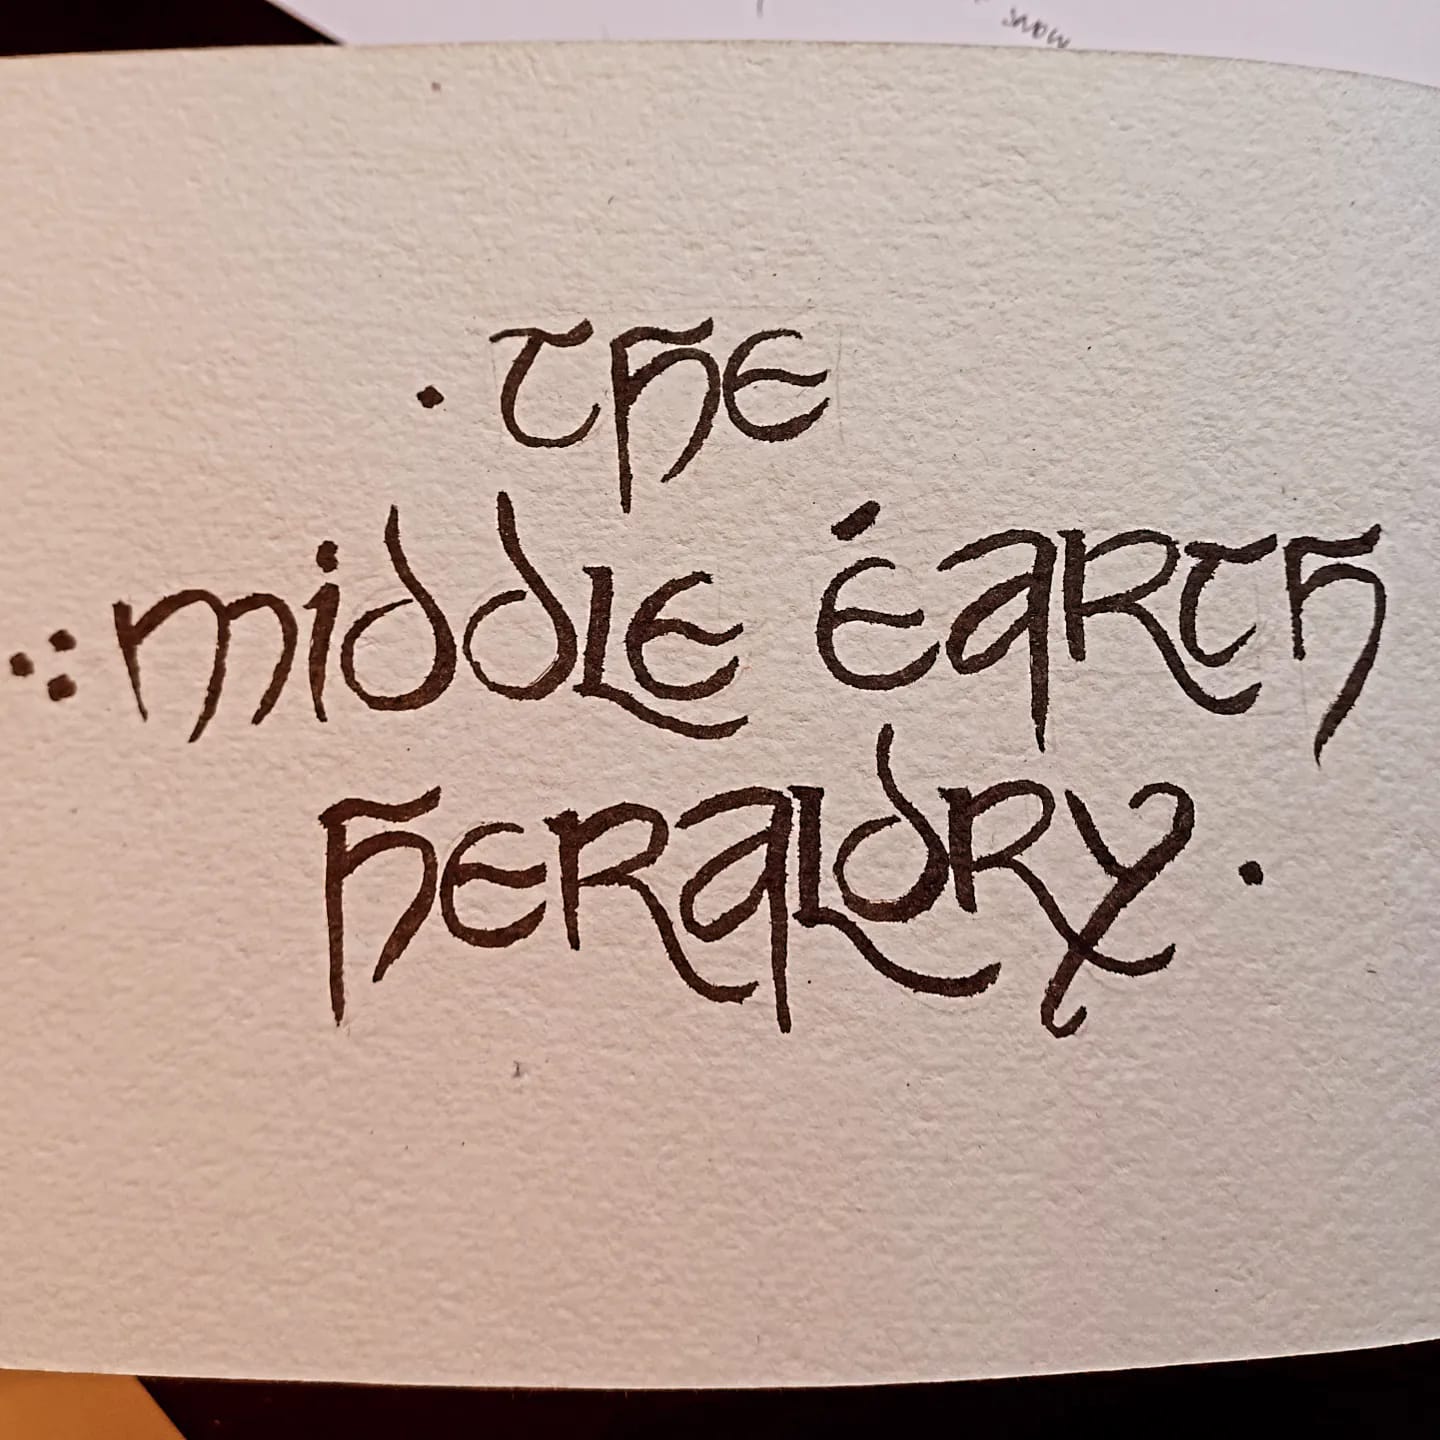 snow
· the
middle éarth
heraldry ·